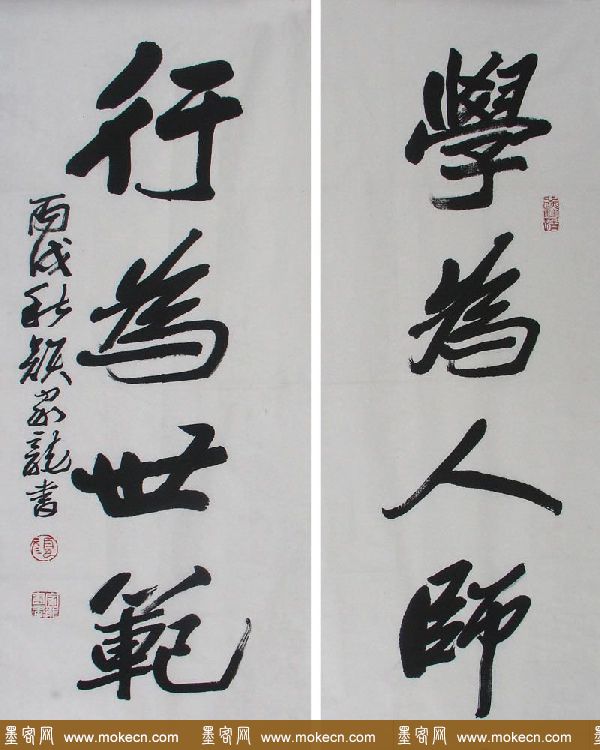 學為人師
行為世範
丙戌秋顏家龍書
墨客网 www.mokecn.com 墨客网 www.mokecn.com 墨客网 www.mokecn.com